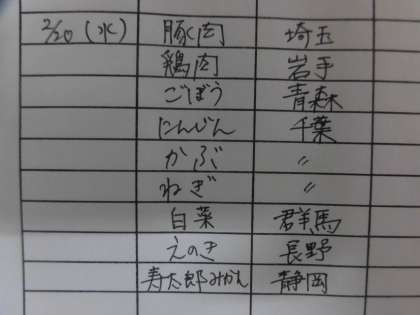 2/20(水) 豚肉 埼玉
鶏肉 岩手
ごぼう 青森
にんじん 千葉
かぶ 〃
ねぎ 〃
白菜 群馬
えのき 長野
寿太郎みかん 静岡